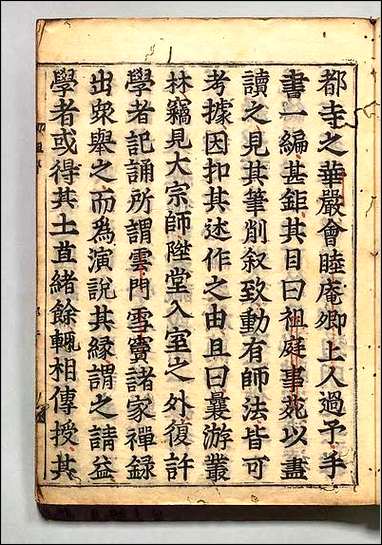 都寺之華嚴會睦庵卿上人過予手
書一編甚鉅其目曰祖庭事苑以盡
讀之見其筆削叙致動有師法皆可
考據因扣其述作之由且曰曩游叢
林竊見大宗師陞堂入室之外復許
學者記誦所謂雲門雪竇諸家禪録
出眾舉之而為演說其緣謂之請益
學者或得其土苴緒餘輒相傳授其